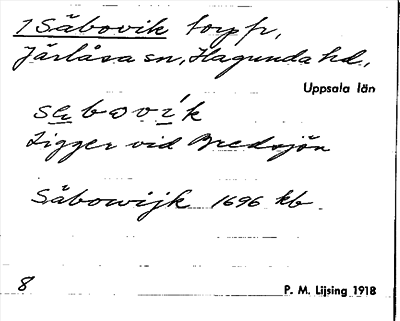 1 Säbovik torp fr,
Järlåsa sn, Hagunda hd.,
Uppsala län
sebovík
Ligger vid Bredsjön
Säbowijk 1696 kb.
8 P. M. Lijsing 1918